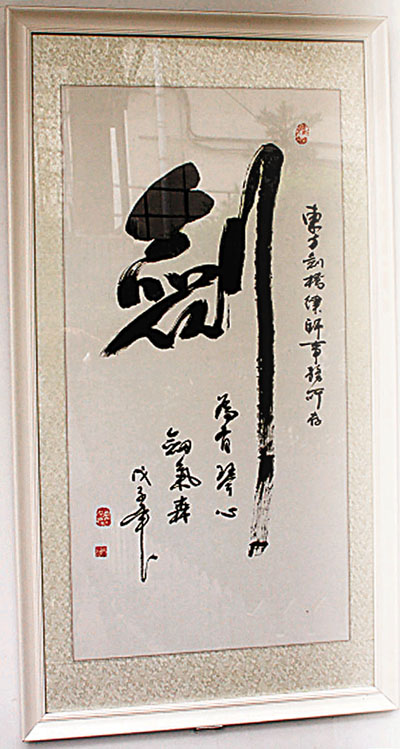 東方劍橋律師事務所存
劍
為有琴心
劍氣森
戊子年